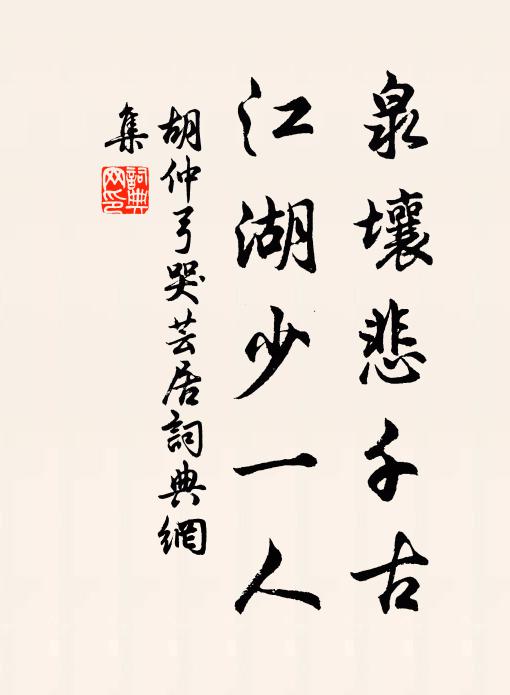 泉壤悲千古
江湖少一人
胡仲弓哭芸居詞典網
集
詞典网印